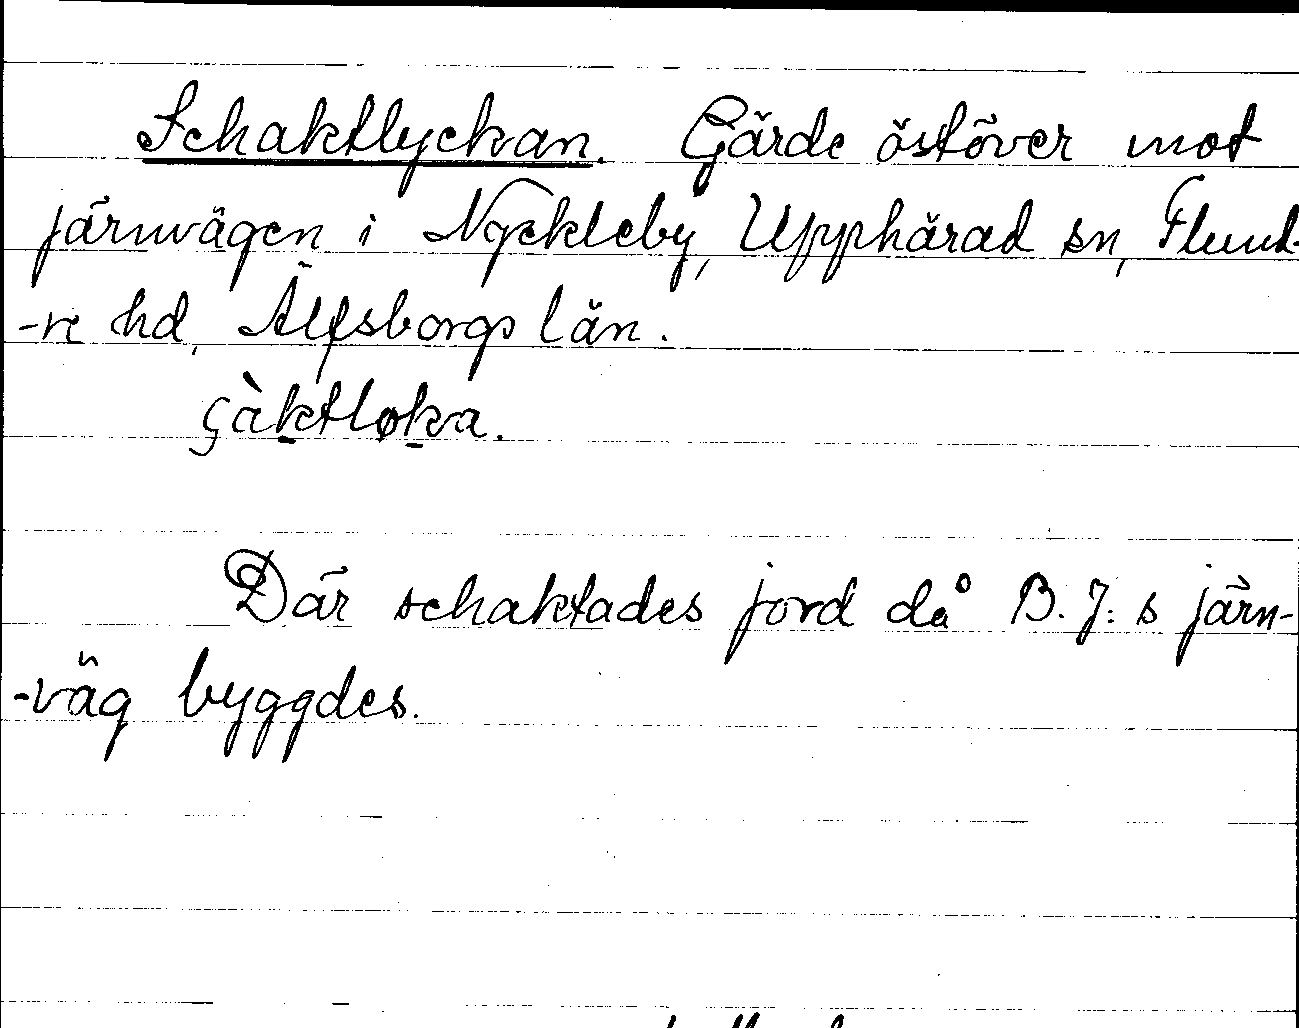 Schaktlyckan. Gärde östöver mot
järnvägen i Nyckleby, Upphärad sn, Flund-
-re hd, Älfsborgs län.
çàktløka.
Där schaktades jord då B. J:s järn-
-väg byggdes.